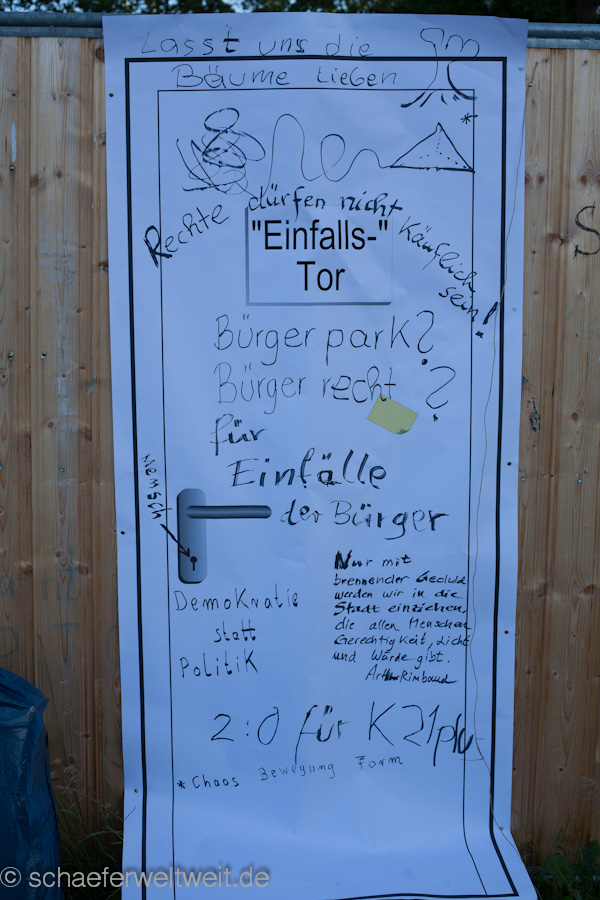 Lasst uns die
Bäume lieben
Rechte dürfen nicht käuflich
sein!
"Einfalls-"
Tor
Bürgerpark?
Bürgerrecht?
für
Einfälle
der Bürger
Mensch
Nur mit
brennender Geduld
werden wir in die
Stadt einziehen,
die allen Menschen
Gerechtigkeit, Licht
und Würde gibt.
Rimbaud
Demokratie
statt
Politik
2:0 für K21plus
*Chaos Bewegung Form
© schaeferweltweit.de